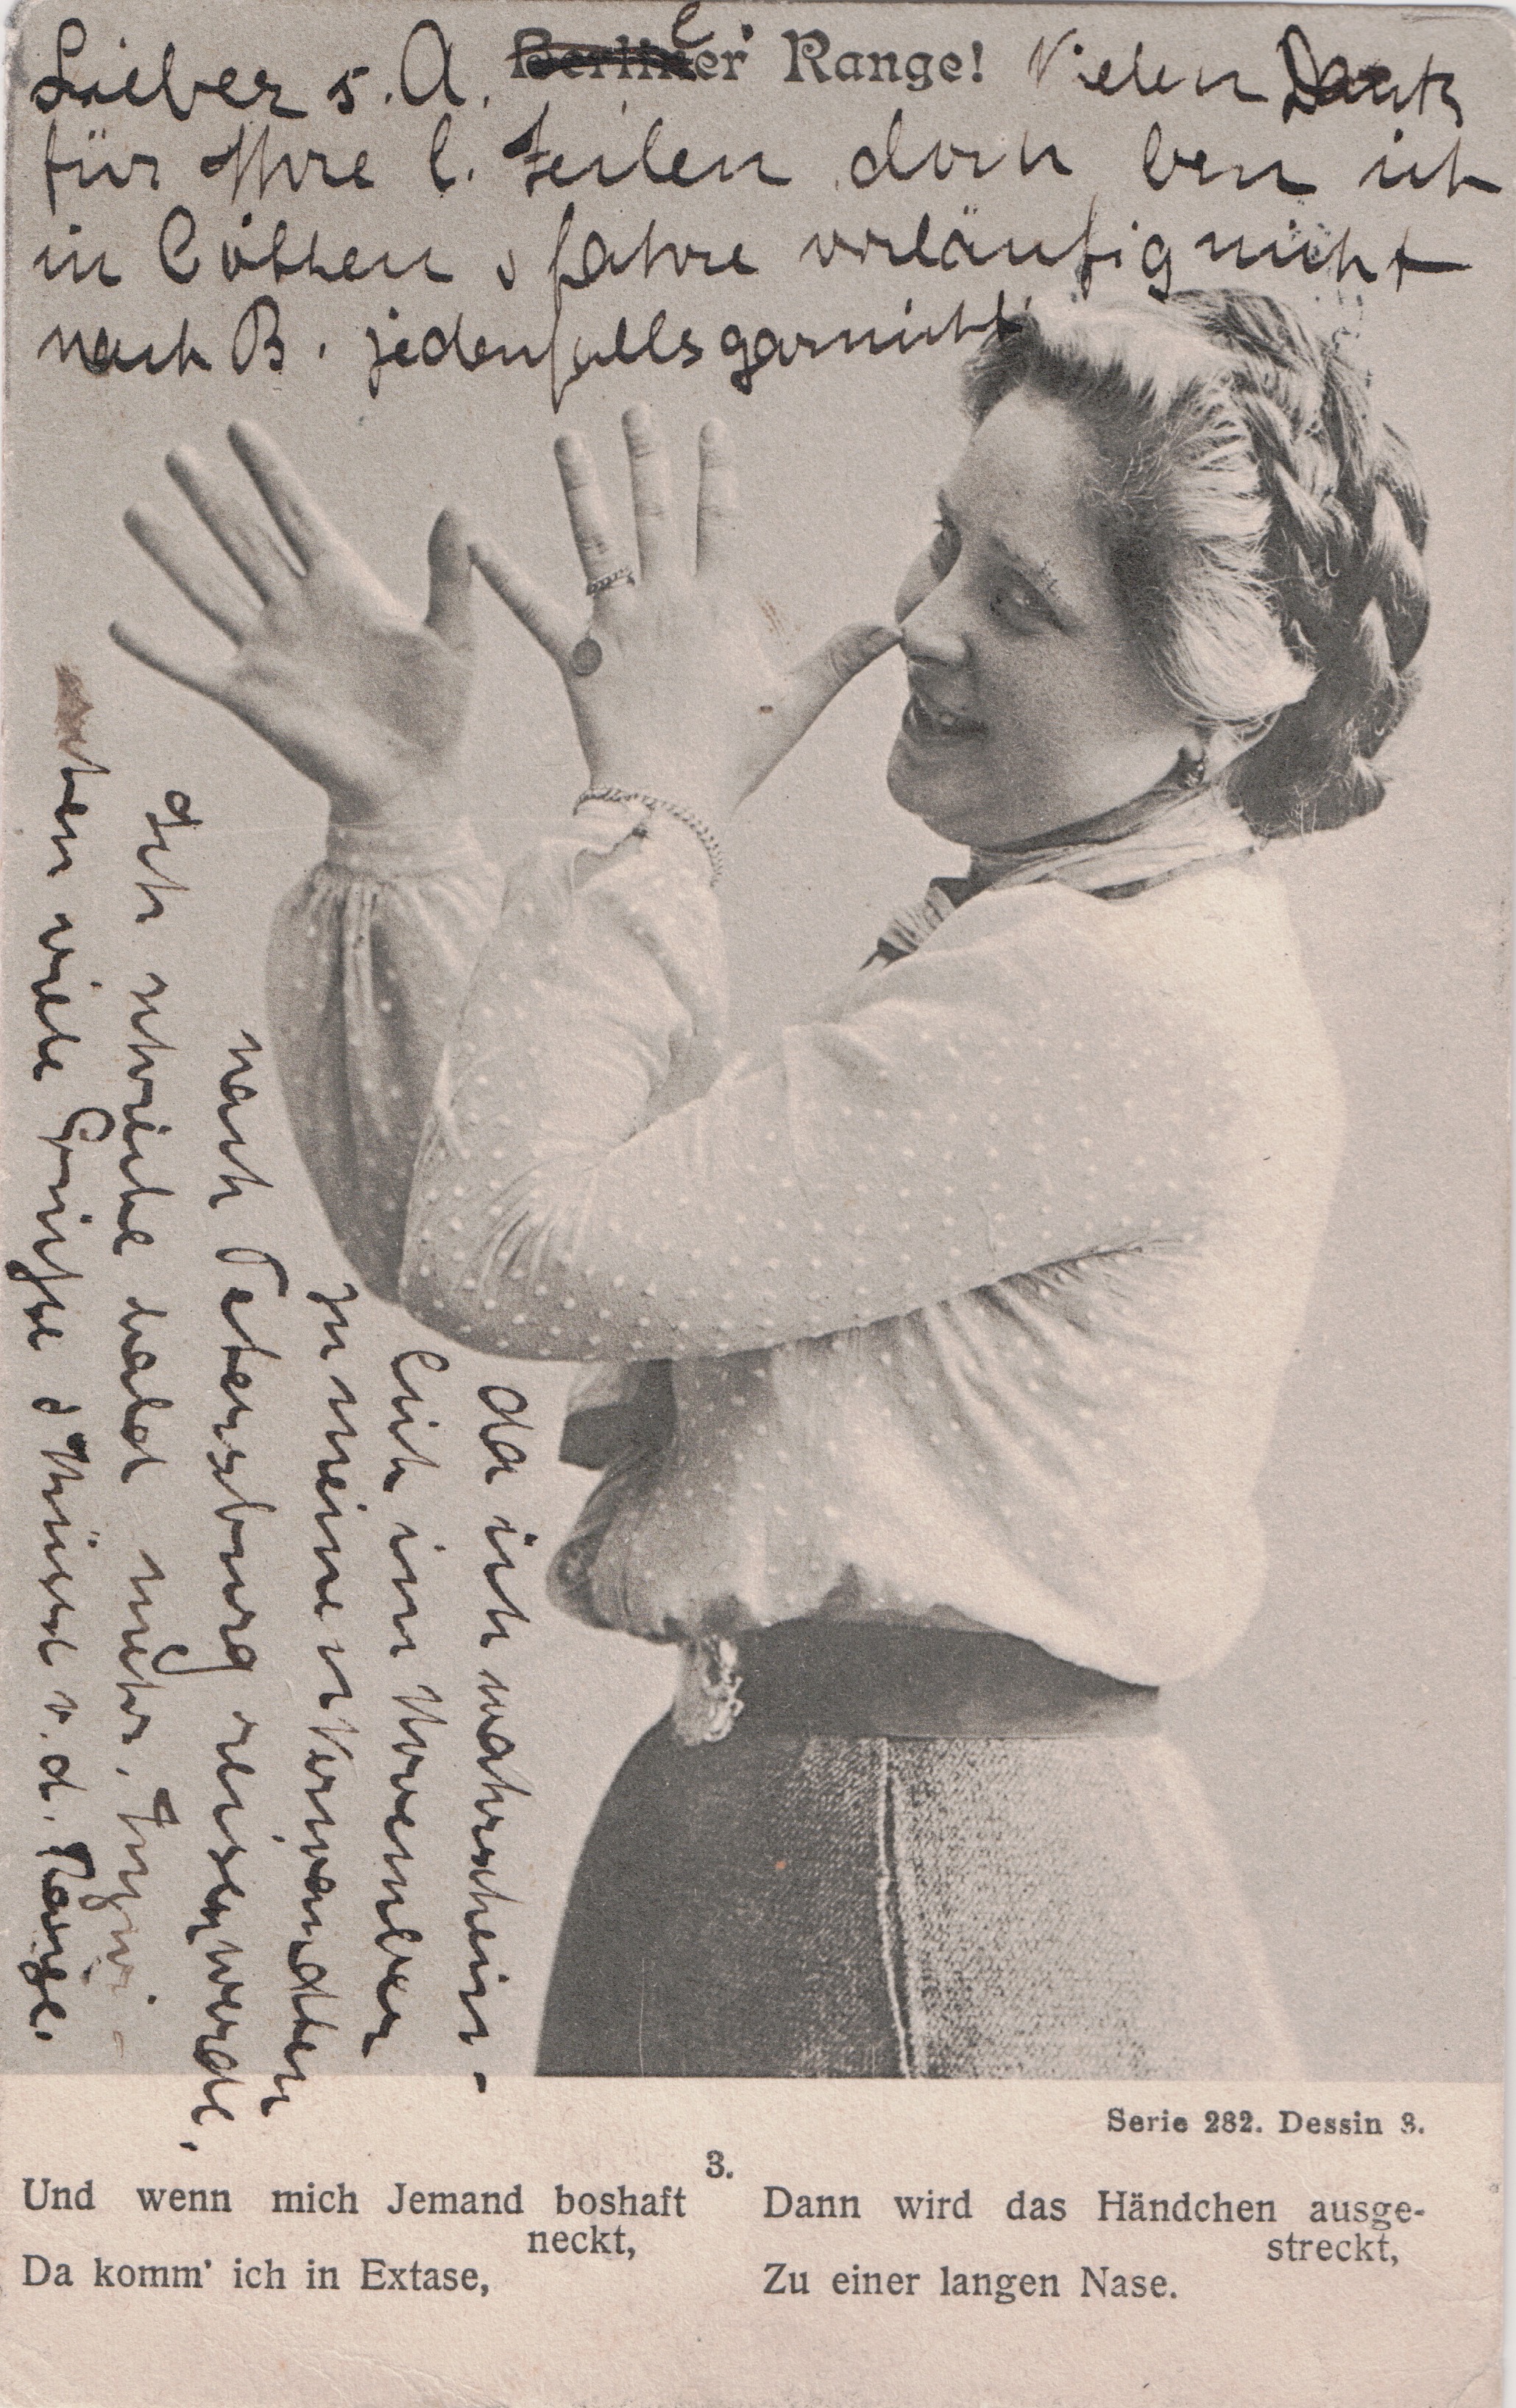 Lieber s. A. Berliner Range! Vielen Dank
für Ihre l. Zeilen doch bin ich
in Cöthen u fahre vorläufig nicht
nach B. jedenfalls garnicht
da ich wahrschein-
lich im November
zu meinen Verwandten
nach Petersburg reisen werde.
Ich schreibe bald mehr. Inzwi-
schen viele Grüße u Küsse v. d. Range.
Serie 282. Dessin 3.
3.
Und wenn mich Jemand boshaft
neckt,
Da komm' ich in Extase,
Dann wird das Händchen ausge-
streckt,
Zu einer langen Nase.